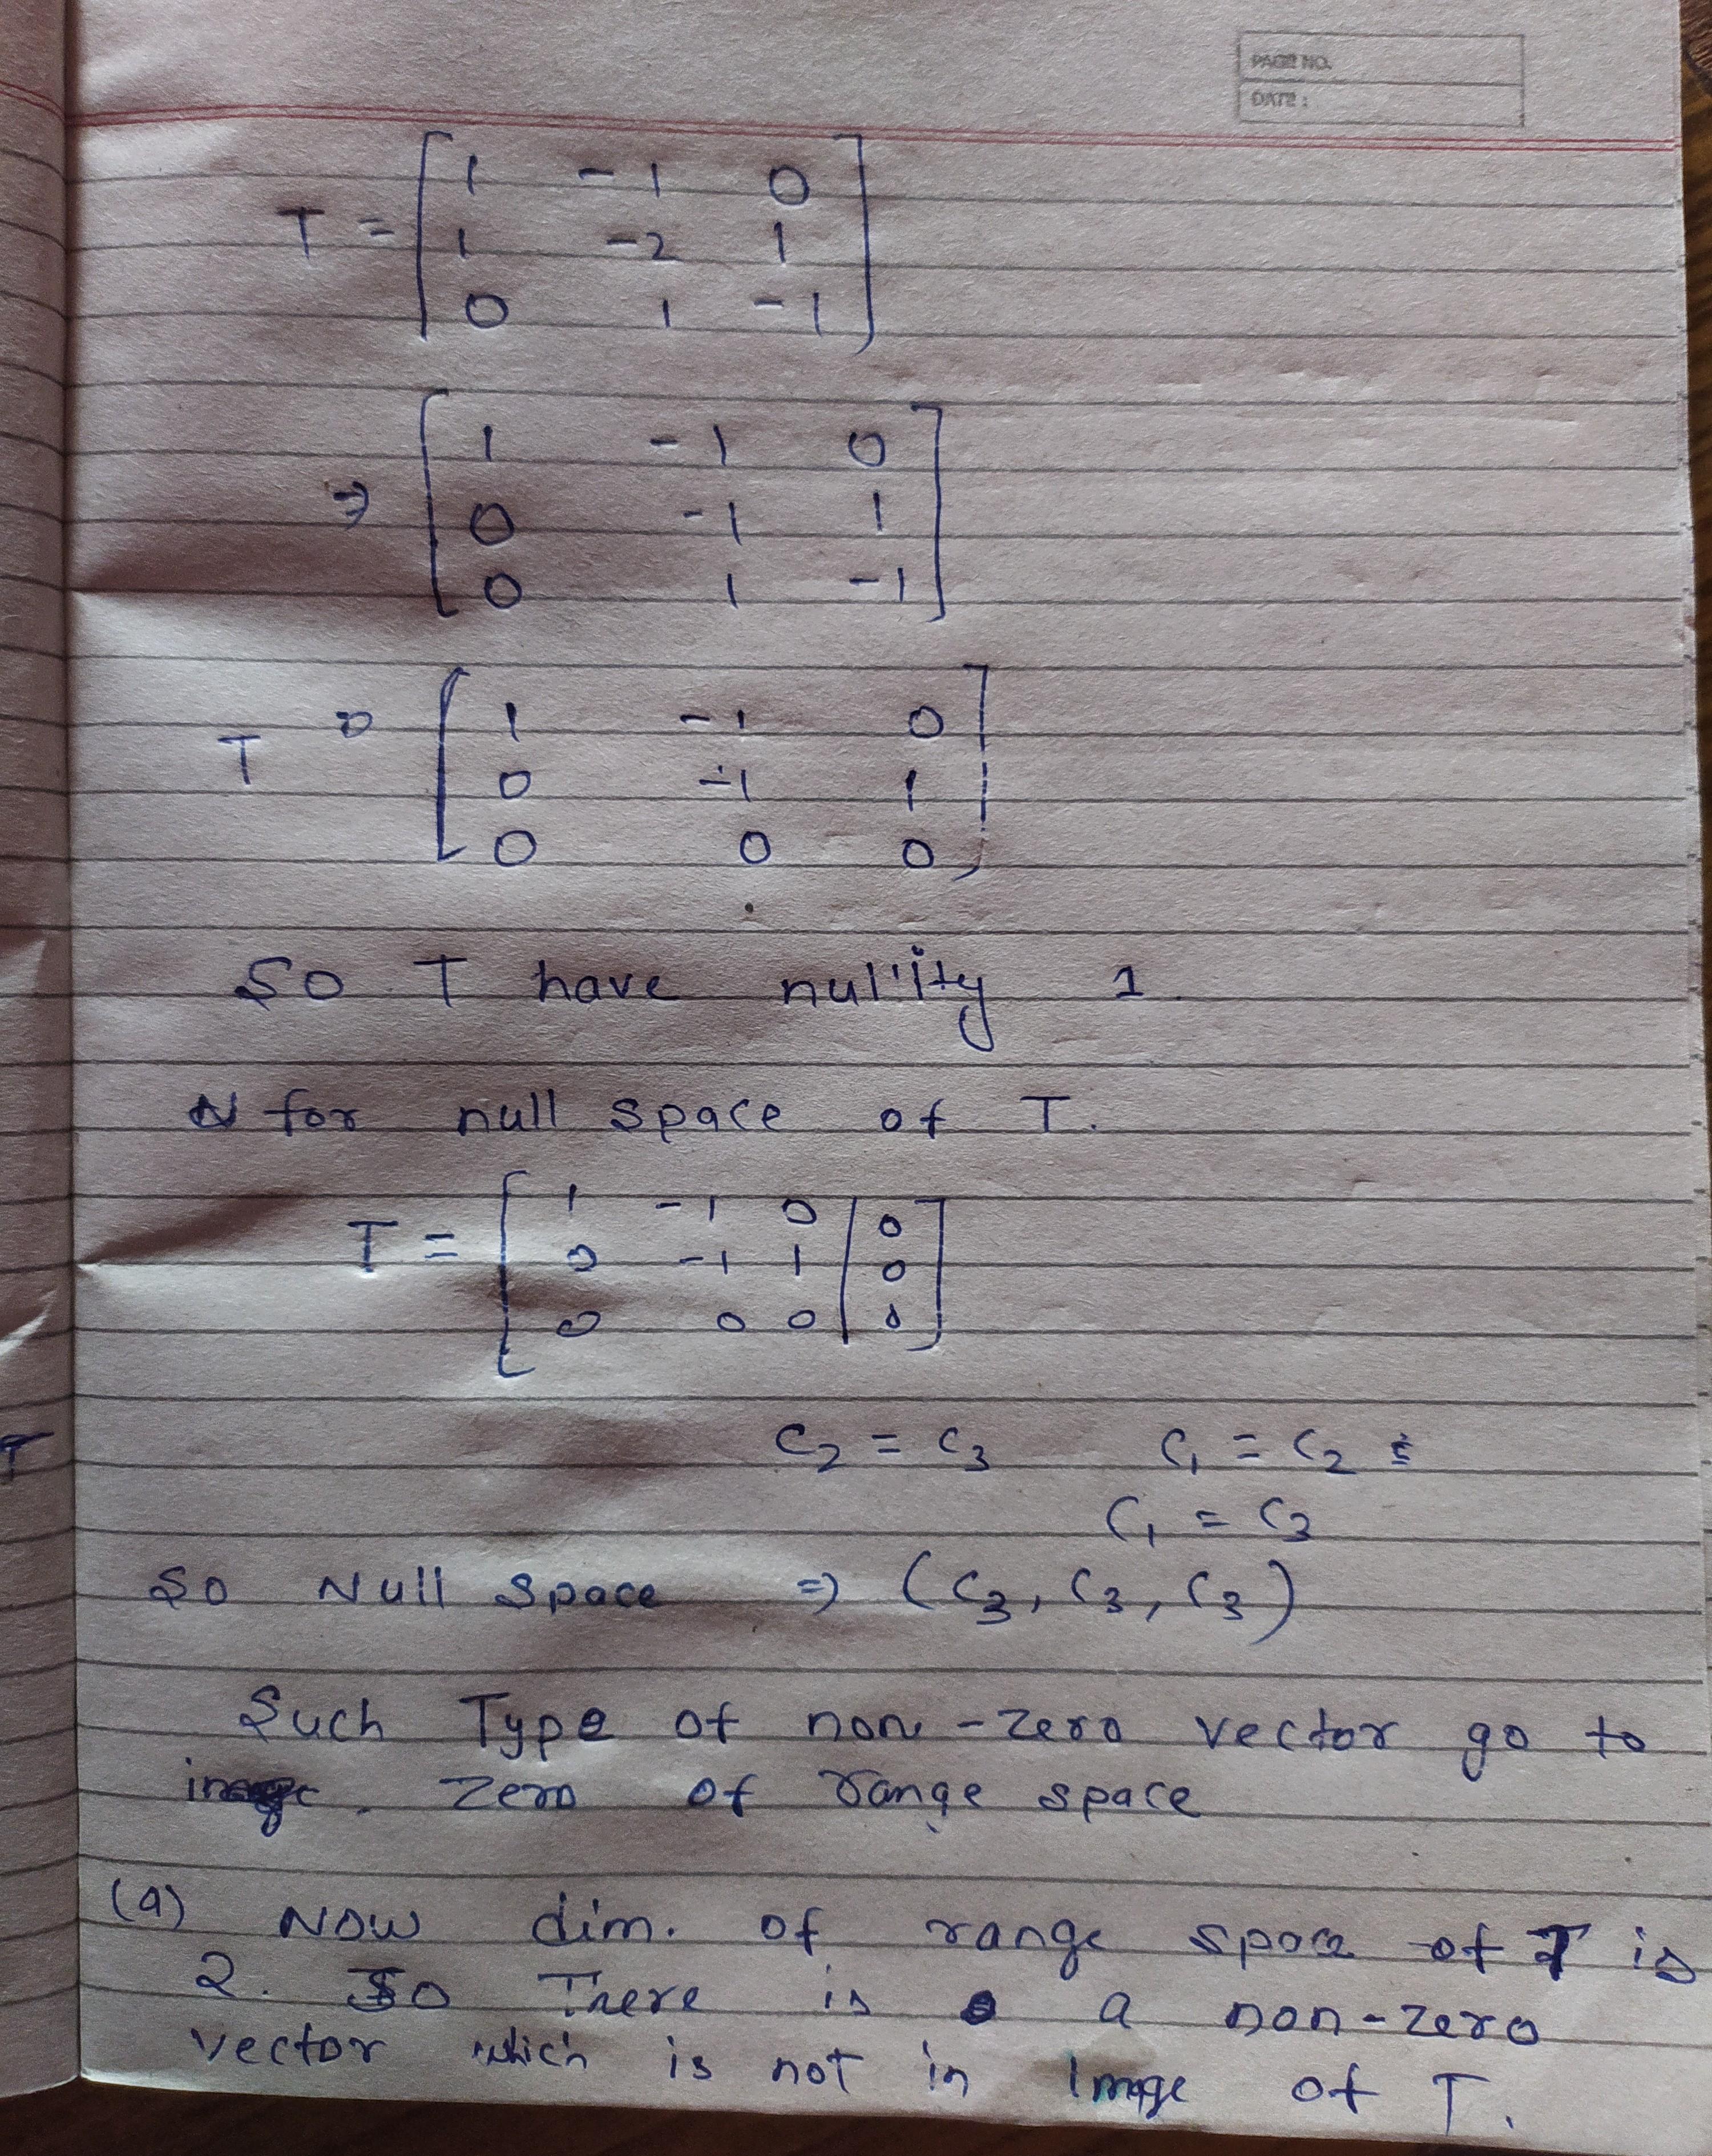 PAGE NO.
DATE :
T = [ 1 -1 0
1 -2 1
0 1 -1 ]
⇒ [ 1 -1 0
0 -1 1
0 1 -1 ]
T [ 1 -1 0
0 -1 1
0 0 0 ]
So T have nullity 1.
for null space of T.
T = [ 1 -1 0 | 0
0 -1 1 | 0
0 0 0 | 0 ]
C₂ = C₃ C₁ = C₂
C₁ = C₃
So Null space ⇒ (C₃, C₃, C₃)
Such Type of non-zero vector go to
zero of range space
(a) Now dim. of range space of T is
2. So There is a non-zero
vector which is not in Image of T.